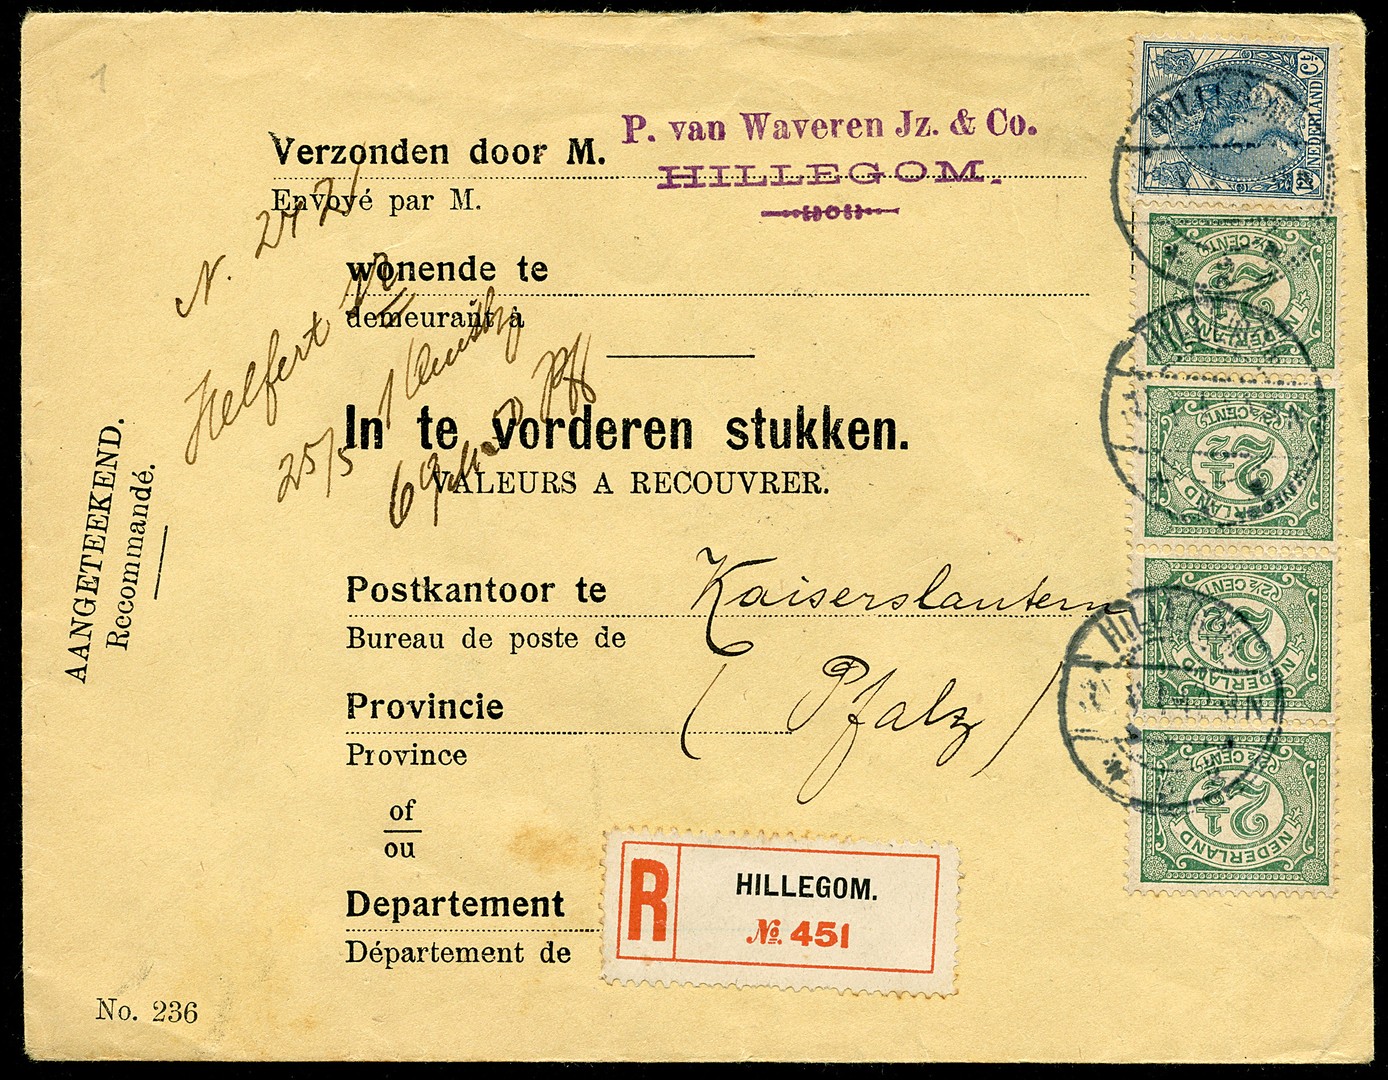 1
Verzonden door M. P. van Waveren Jz. & Co.
Envoyé par M. HILLEGOM.
wonende te
demeurant à
N. 2472
Helfert
25/5
In te vorderen stukken.
VALEURS A RECOUVRER.
AANGETEEKEND.
Recommandé.
Postkantoor te Kaiserslautern
Bureau de poste de
Provincie (Pfalz)
Province
of
ou
Departement
Département de
R HILLEGOM.
No. 451
No. 236
12½ NEDERLAND Ct
HILLEGOM
2½ CENT
2½
NEDERLAND
2½ CENT
2½
NEDERLAND
2½ CENT
2½
NEDERLAND
HILLEGOM
2½ CENT
2½
NEDERLAND